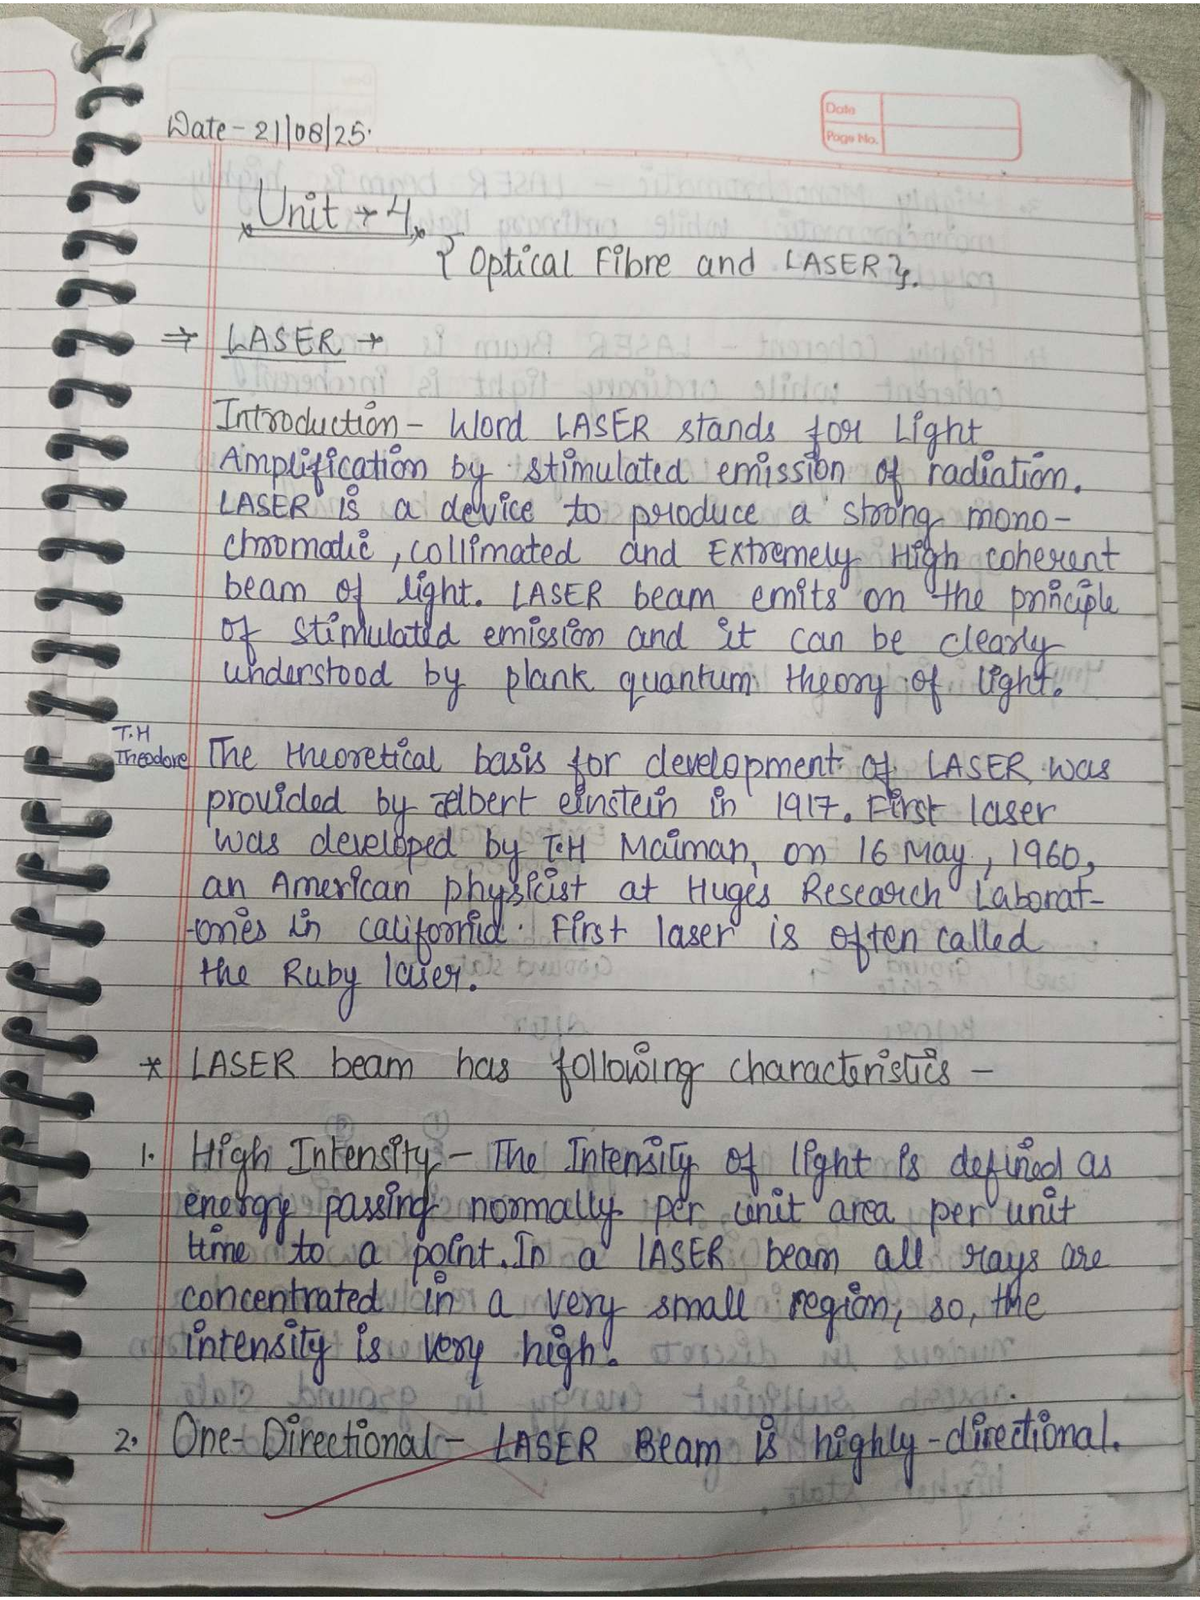 Date
Page No.
Date - 21/08/25.
Unit → 4
{ Optical Fibre and LASER }.
⇒ LASER →
Introduction - Word LASER stands for Light
Amplification by stimulated emission of radiation.
LASER is a device to produce a strong mono-
chromatic, collimated and Extremely High coherent
beam of light. LASER beam emits on the principle
of stimulated emission and it can be clearly
understood by plank quantum theory of light.
T.H
Theodore
The theoretical basis for development of LASER was
provided by Albert einstein in 1917. First laser
was developed by T.H Maiman, on 16 May, 1960,
an American physicist at Huges Research Laborat-
-ories in california. First laser is often called
the Ruby laser.
* LASER beam has following characteristics -
1. High Intensity - The Intensity of light is defined as
energy passing normally per unit area per unit
time to a point. In a LASER beam all rays are
concentrated in a very small region, so, the
intensity is very high.
2. One-Directional - LASER Beam is highly-directional.